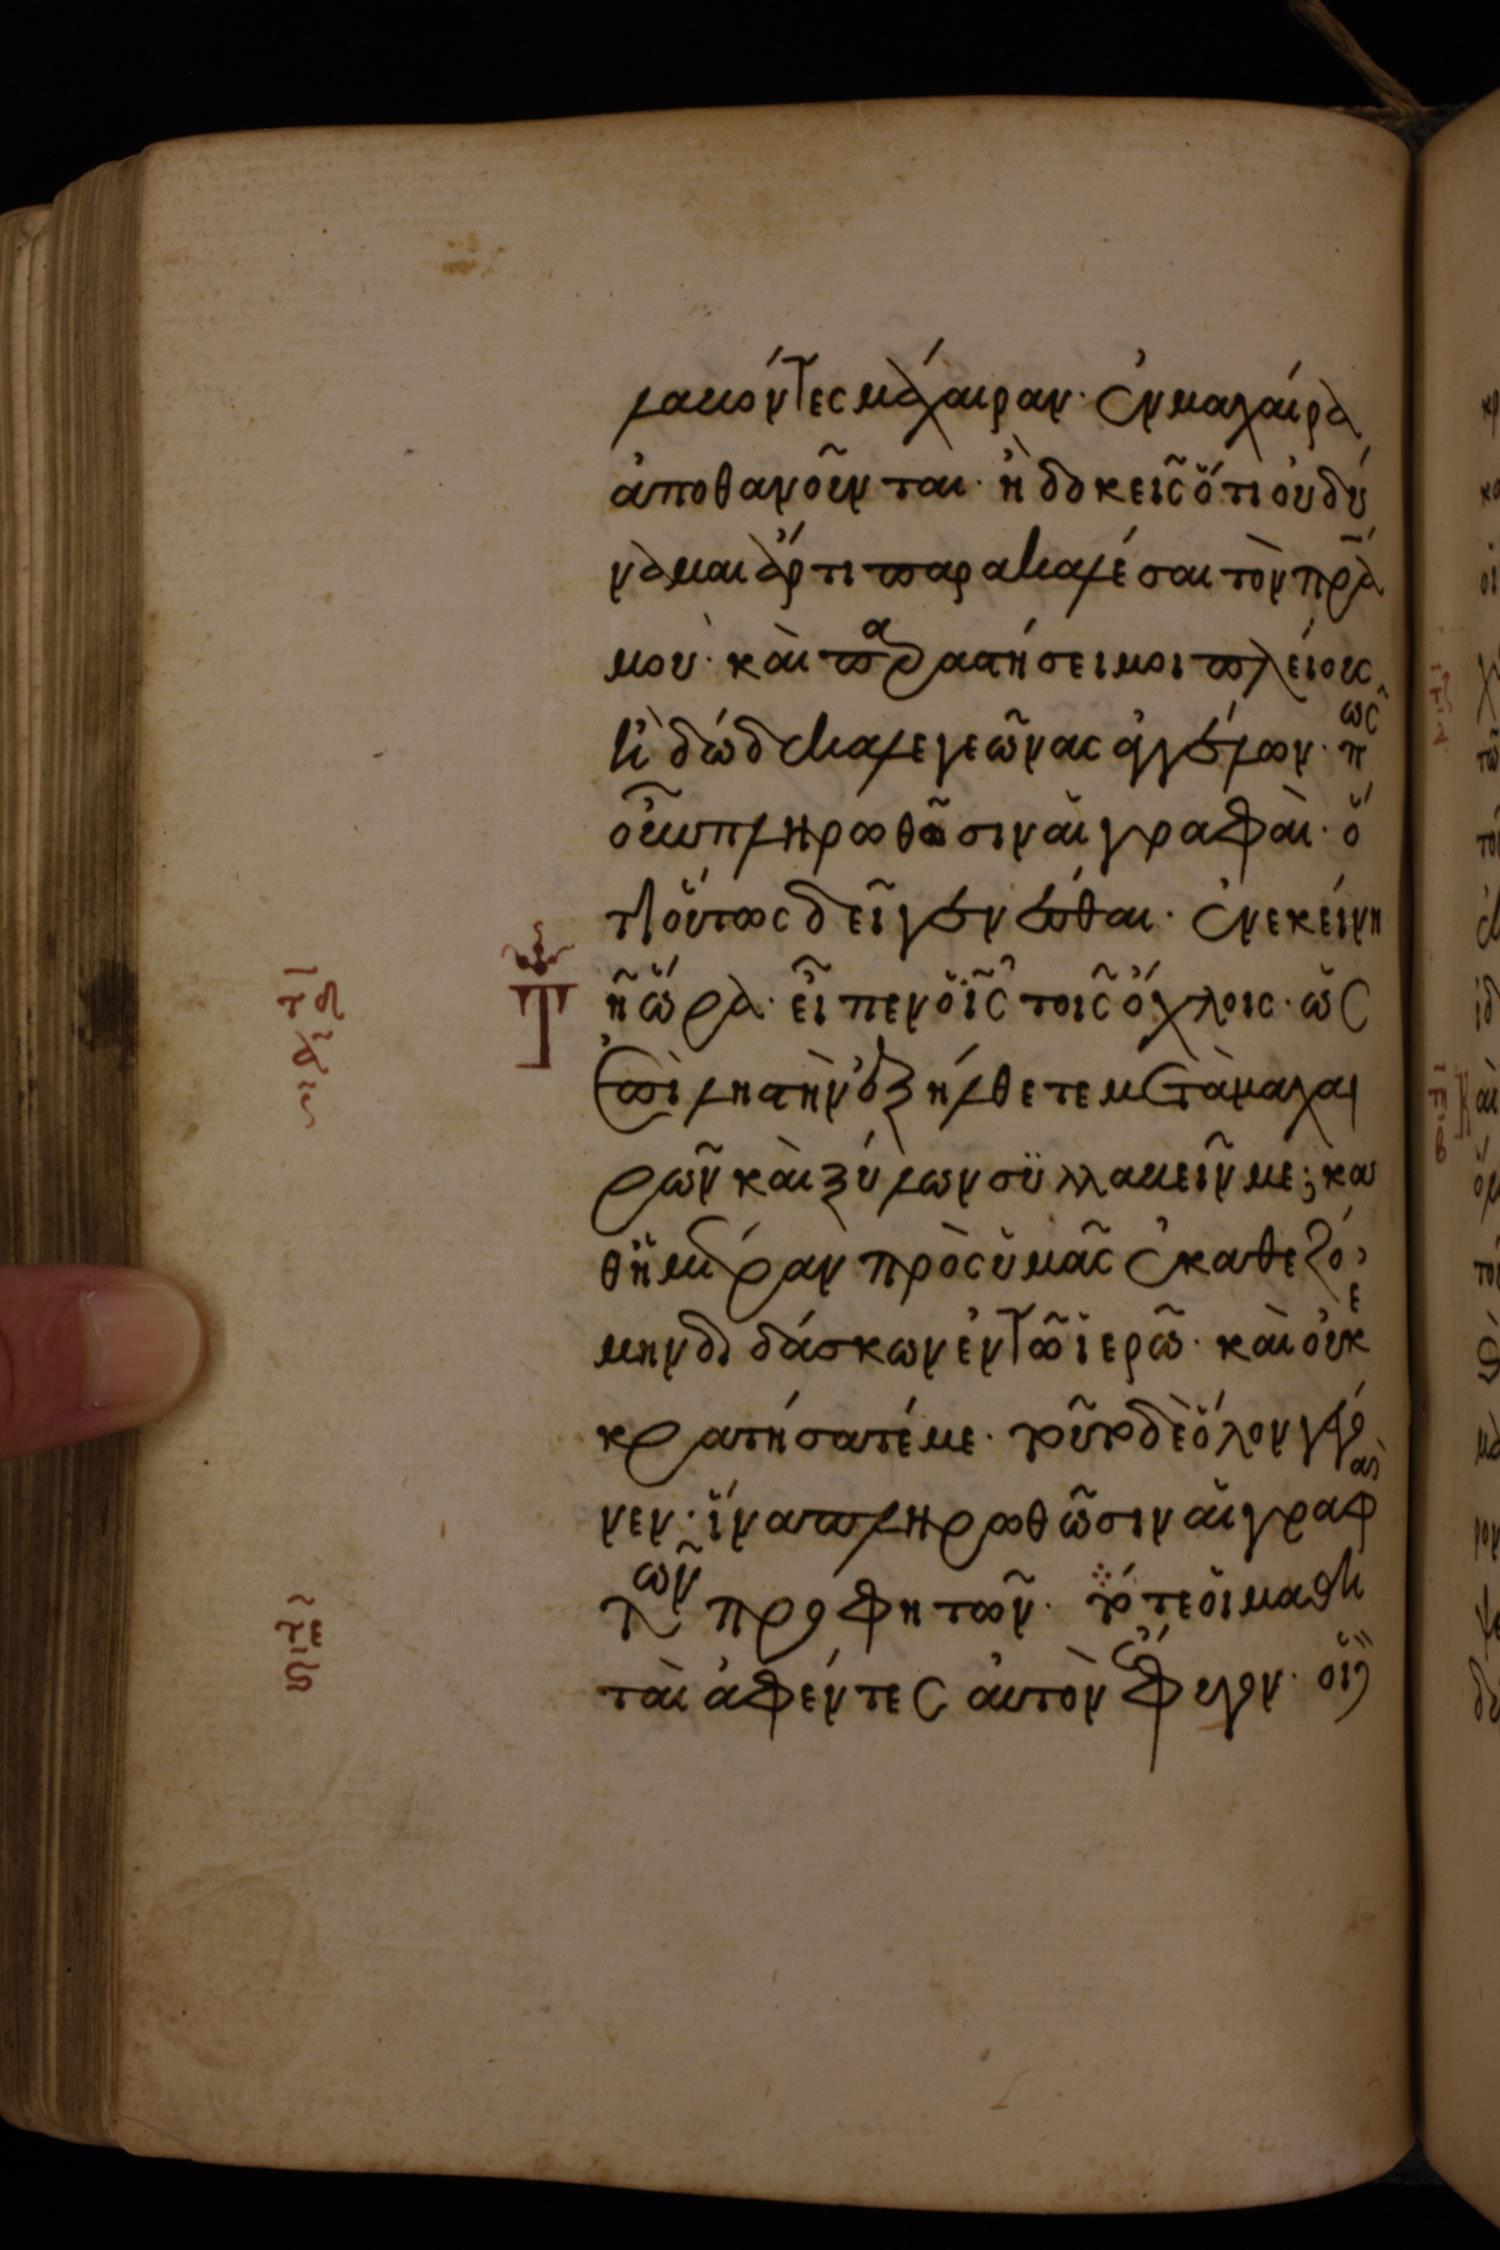 λαβόντες μάχαιραν· ἐν μαχαίρα
ἀποθανοῦνται· ἢ δοκεῖς ὅτι οὐ δύ
ναμαι ἄρτι παρακαλέσαι τὸν πρ̅α
μου· καὶ παραστήσει μοι πλείους
ἢ δώδεκα λεγεῶνας ἀγγέλων· πῶς
οὖν πληρωθῶσιν αἱ γραφαὶ· ὅ
τι οὕτως δεῖ γενέσθαι· ἐν ἐκείνη
τῆ ὥρα· εἶπεν ὁ ι̅ς τοῖς ὄχλοις· ὡς
ἐπὶ ληστὴν ἐξήλθετε μετὰ μαχαι
ρῶν καὶ ξύλων συλλαβεῖν με; κα
θ' ἡμέραν πρὸς ὑμᾶς ἐκαθεζό
μην διδάσκων ἐν τῶ ἱερῶ· καὶ οὐκ ἐ
κρατήσατέ με· τοῦτο δὲ ὅλον γέγο
νεν· ἵνα πληρωθῶσιν αἱ γραφαὶ
τῶν προφητῶν· τότε οἱ μαθη
ταὶ ἀφέντες αὐτὸν ἔφυγον· οἱ